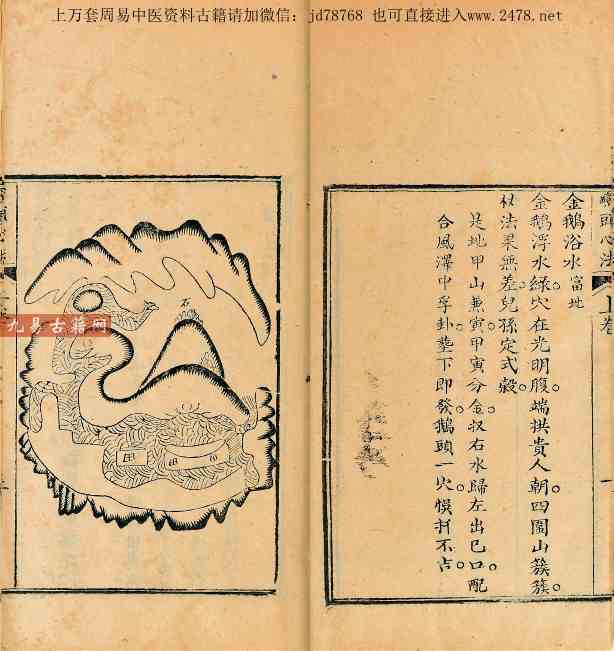 上万套周易中医资料古籍请加微信：jd78768 也可直接进入www.2478.net
頭心法 上卷
金鵝浴水 富地
金鵝浮水綠穴在光明腹端拱貴人朝四圍山簇簇
杖法果無差兒孫定式穀
是地甲山兼寅甲寅分金收右水歸左出巳口配
合風澤中孚卦塟下即發鵝頭一穴慎扦不吉
石
田
田
九易古籍网